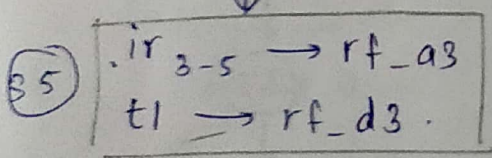 35
.ir 3-5 → rf_a3
t1 → rf_d3.